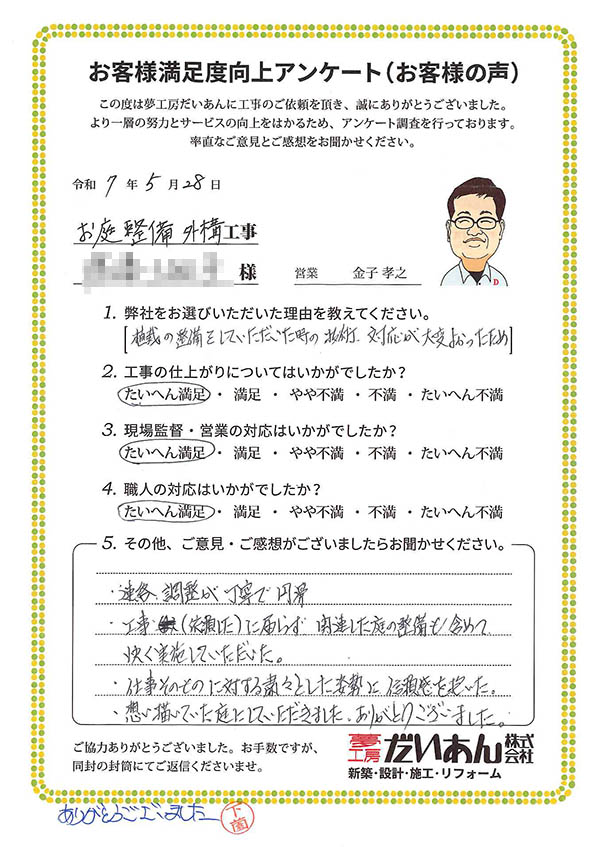 お客様満足度向上アンケート(お客様の声)
この度は夢工房だいあんに工事のご依頼を頂き、誠にありがとうございました。
より一層の努力とサービスの向上をはかるため、アンケート調査を行っております。
率直なご意見とご感想をお聞かせください。
令和 7 年 5 月 28 日
お庭整備 外構工事
様
営業 金子 孝之
D
1. 弊社をお選びいただいた理由を教えてください。
[植栽の整備をしていただいた時の技術、対応が大変よかったため]
2. 工事の仕上がりについてはいかがでしたか?
たいへん満足 ・ 満足 ・ やや不満 ・ 不満 ・ たいへん不満
3. 現場監督・営業の対応はいかがでしたか?
たいへん満足 ・ 満足 ・ やや不満 ・ 不満 ・ たいへん不満
4. 職人の対応はいかがでしたか?
たいへん満足 ・ 満足 ・ やや不満 ・ 不満 ・ たいへん不満
5. その他、ご意見・ご感想がございましたらお聞かせください。
・連絡、調整が丁寧で円滑
・工事(依頼した)に限らず 関連した庭の整備も含めて
快く実施していただいた。
・仕事そのものに対する粛々とした姿勢に信頼感を抱いた。
・想い描いていた庭にしていただきました。ありがとうございました。
ご協力ありがとうございました。お手数ですが、
同封の封筒にてご返信くださいませ。
夢工房 だいあん 株式会社
新築・設計・施工・リフォーム
ありがとうございました
下薗